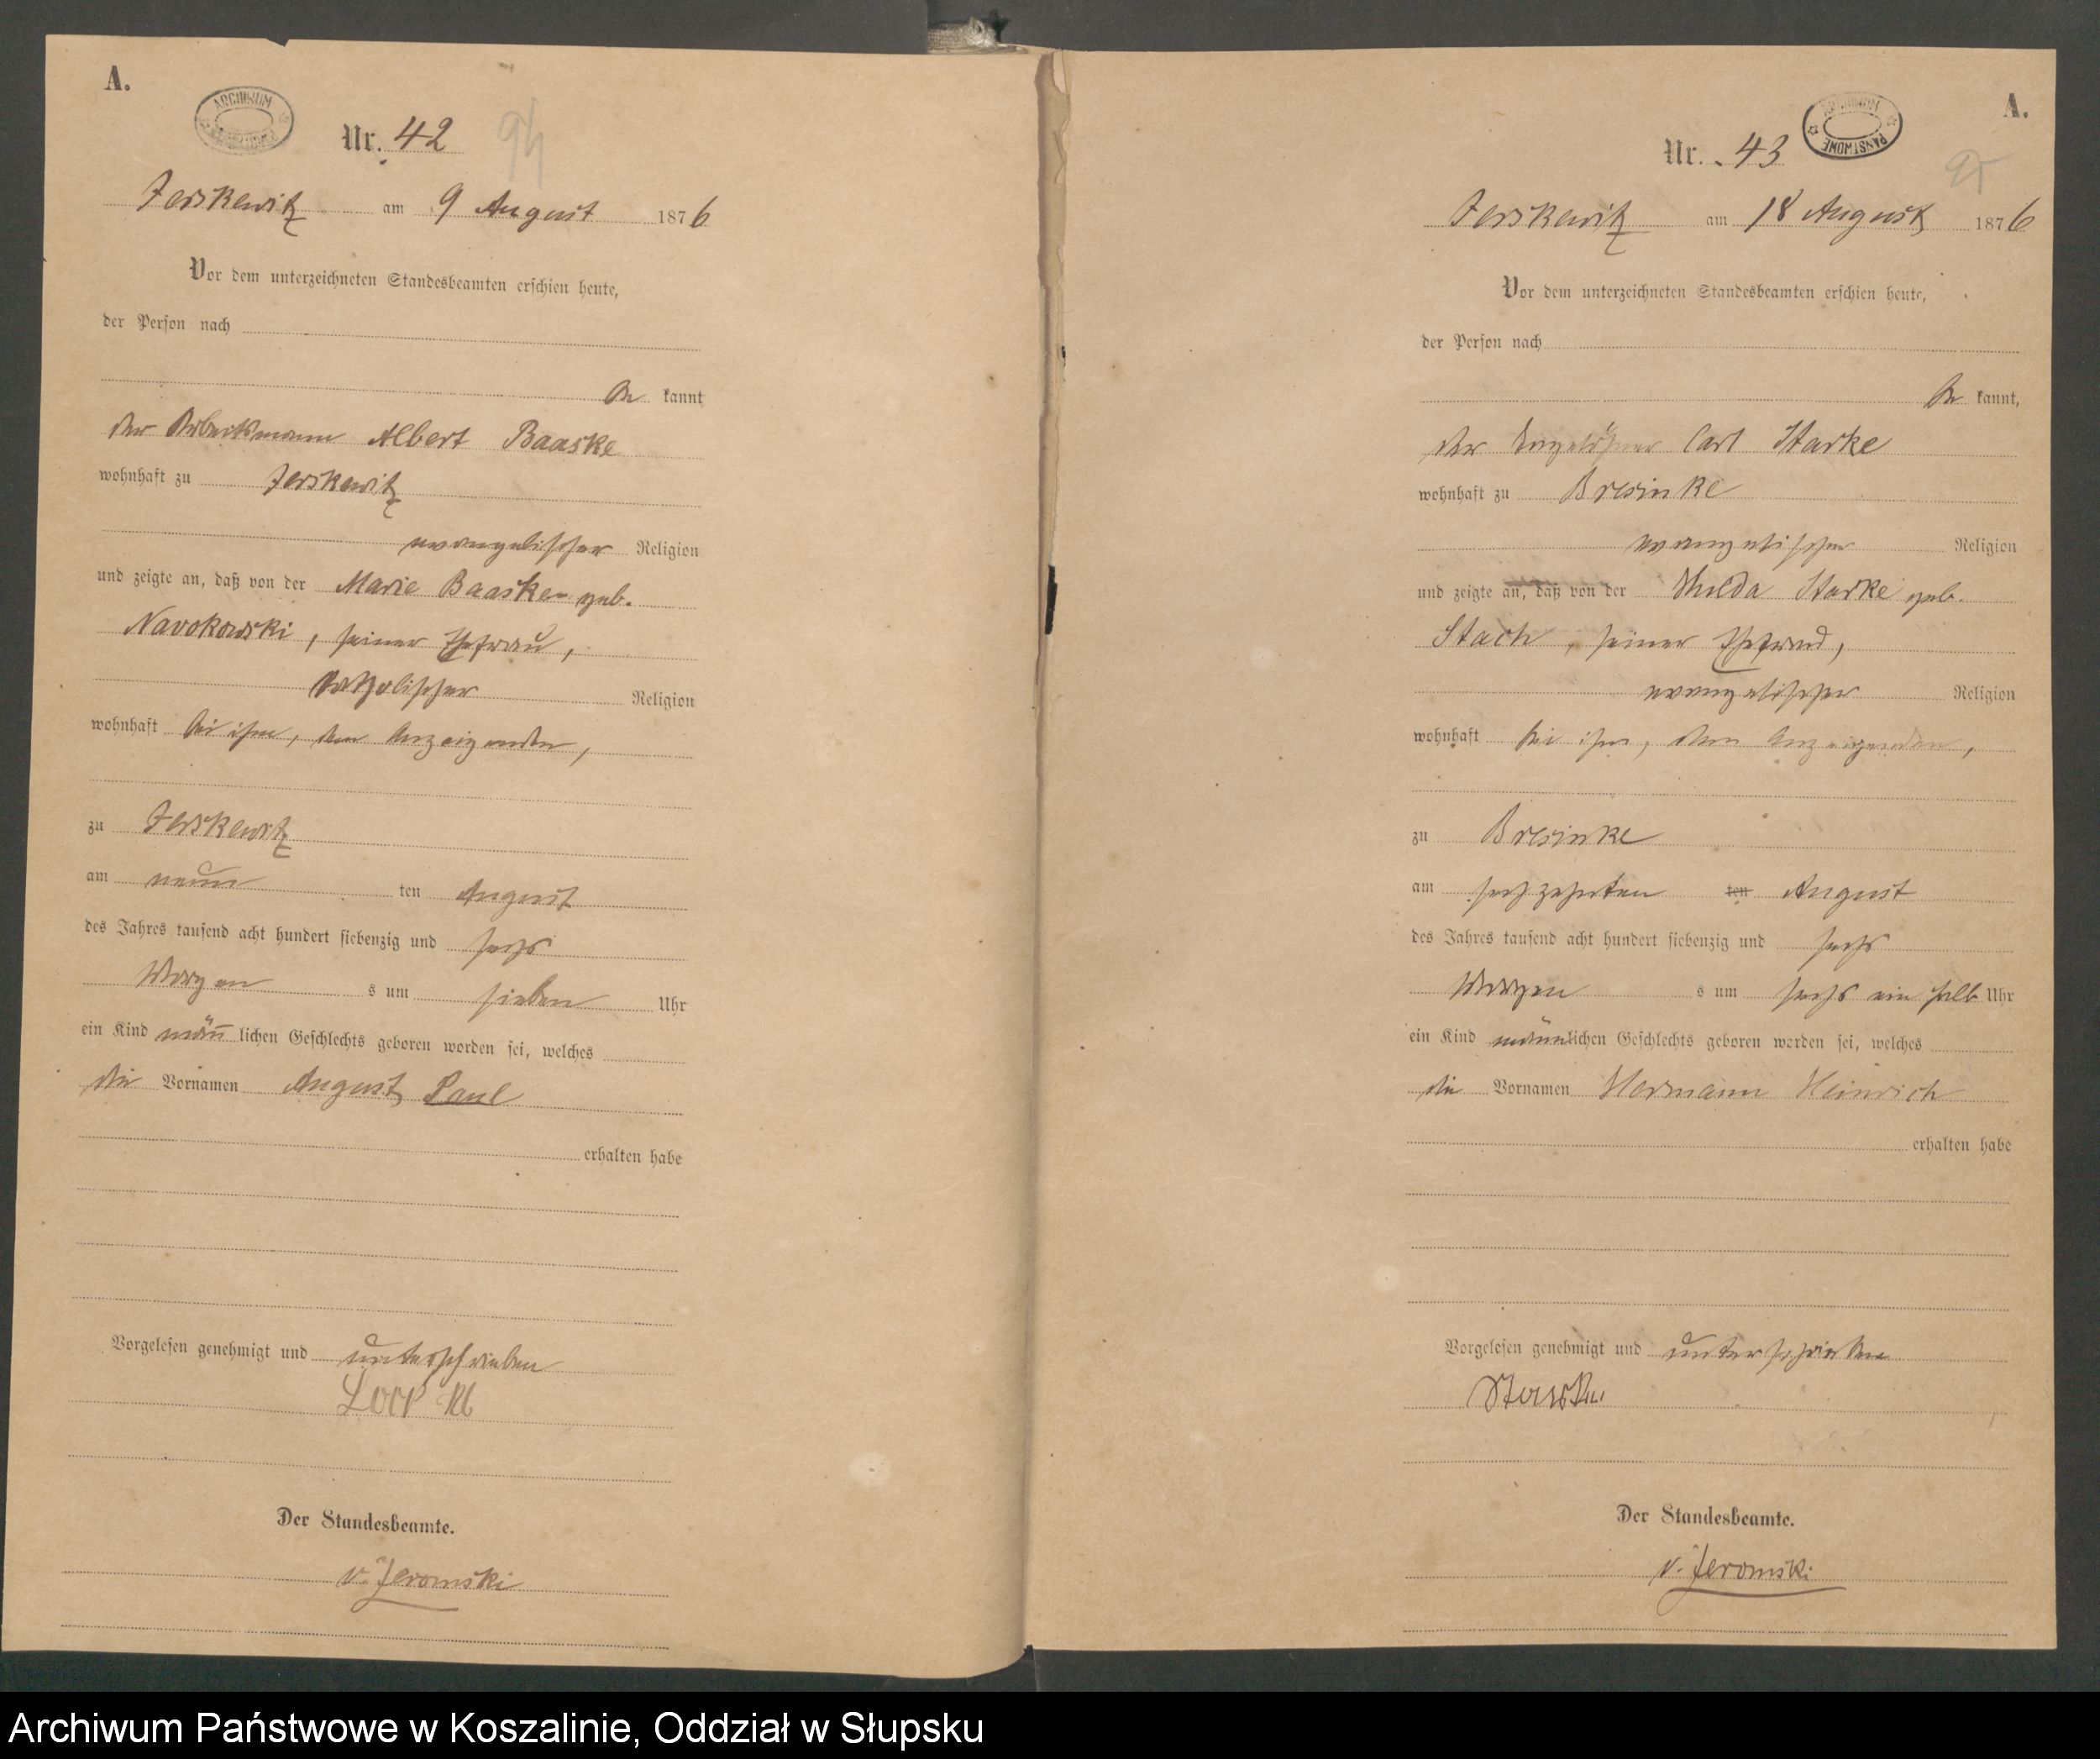 A.
ARCHIWUM
Nr. 42
94
Jerskewitz am 9 August 1876
Vor dem unterzeichneten Standesbeamten erschien heute,
der Person nach
be kannt
der Arbeitsmann Albert Baaske
wohnhaft zu Jerskewitz
evangelischer Religion
und zeigte an, daß von der Marie Baaske geb.
Navokowski, seiner Ehefrau,
katholischer Religion
wohnhaft bei ihm, dem Anzeigenden,
zu Jerskewitz
am neun ten August
des Jahres tausend acht hundert siebenzig und sechs
Morgen s um sieben Uhr
ein Kind männlichen Geschlechts geboren worden sei, welches
die Vornamen August Paul
erhalten habe
Vorgelesen genehmigt und unterschrieben
Der Standesbeamte.
v. Jeromski
A.
ARCHIWUM PAŃSTWOWE
Nr. 43
95
Jerskewitz am 18 August 1876
Vor dem unterzeichneten Standesbeamten erschien heute,
der Person nach
be kannt,
der Carl Starke
wohnhaft zu Bresinke
evangelischer Religion
und zeigte an, daß von der Hulda Starke geb.
Stach, seiner Ehefrau,
evangelischer Religion
wohnhaft bei ihm, dem Anzeigenden,
zu Bresinke
am sechzehnten ten August
des Jahres tausend acht hundert siebenzig und sechs
Morgen s um sechs ein halb Uhr
ein Kind männlichen Geschlechts geboren worden sei, welches
die Vornamen Hermann Heinrich
erhalten habe
Vorgelesen genehmigt und unterschrieben
Starke
Der Standesbeamte.
v. Jeromski
Archiwum Państwowe w Koszalinie, Oddział w Słupsku